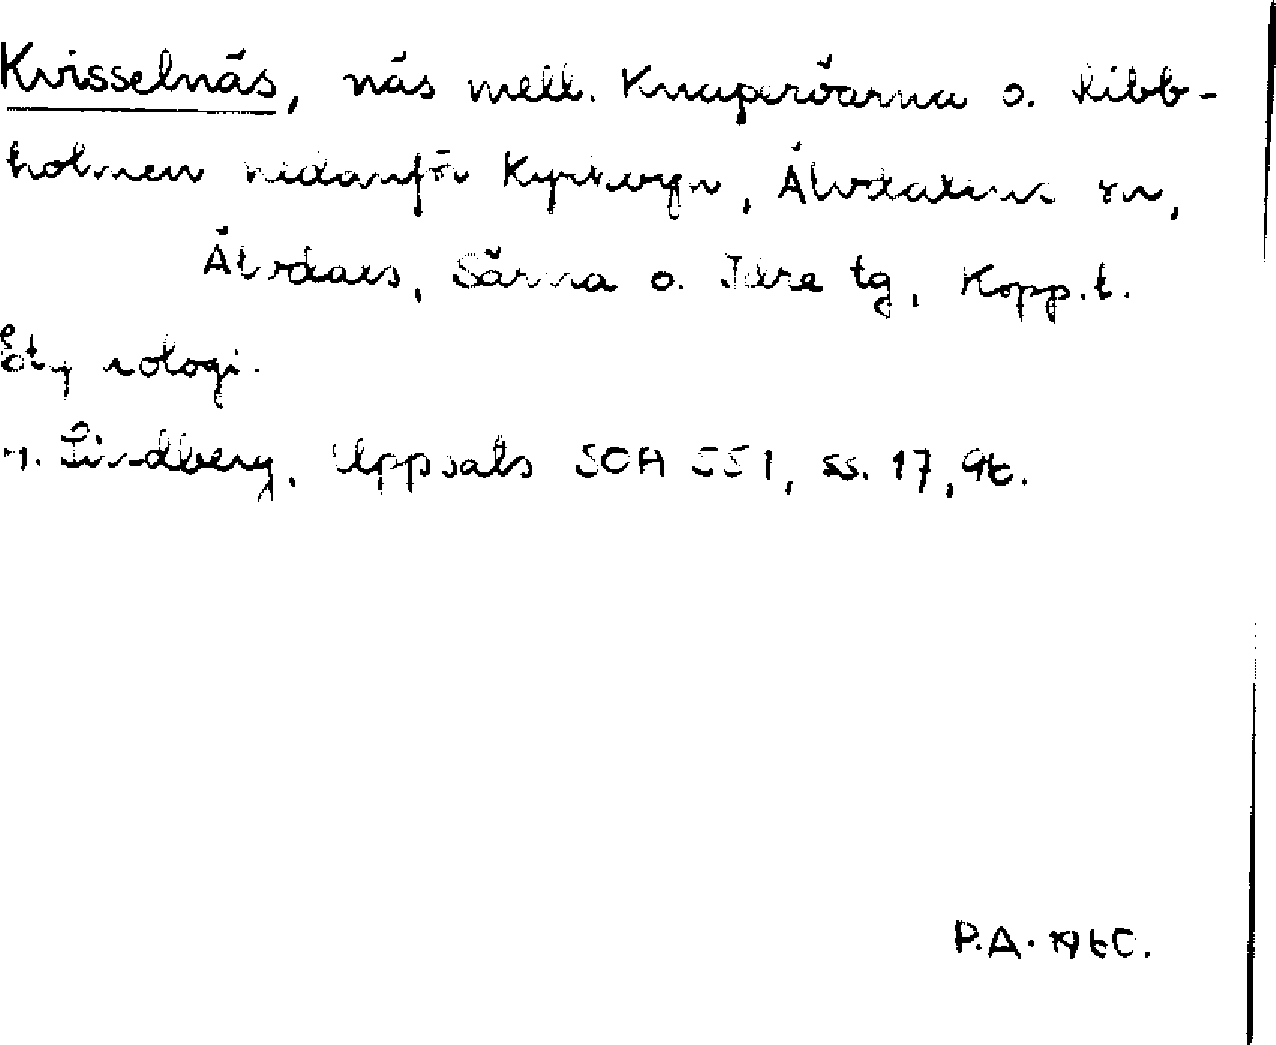 Kvisselnäs, näs mell. Knaperöarna o. Kibb-
holmen nedanför Kyrkbyn, Älvdalens sn,
Älvdals, Särna o. Idre tg, Kopp.l.
Etymologi.
H. Lindberg, Uppsats SOA 551, ss. 17,
P.A. 1960.